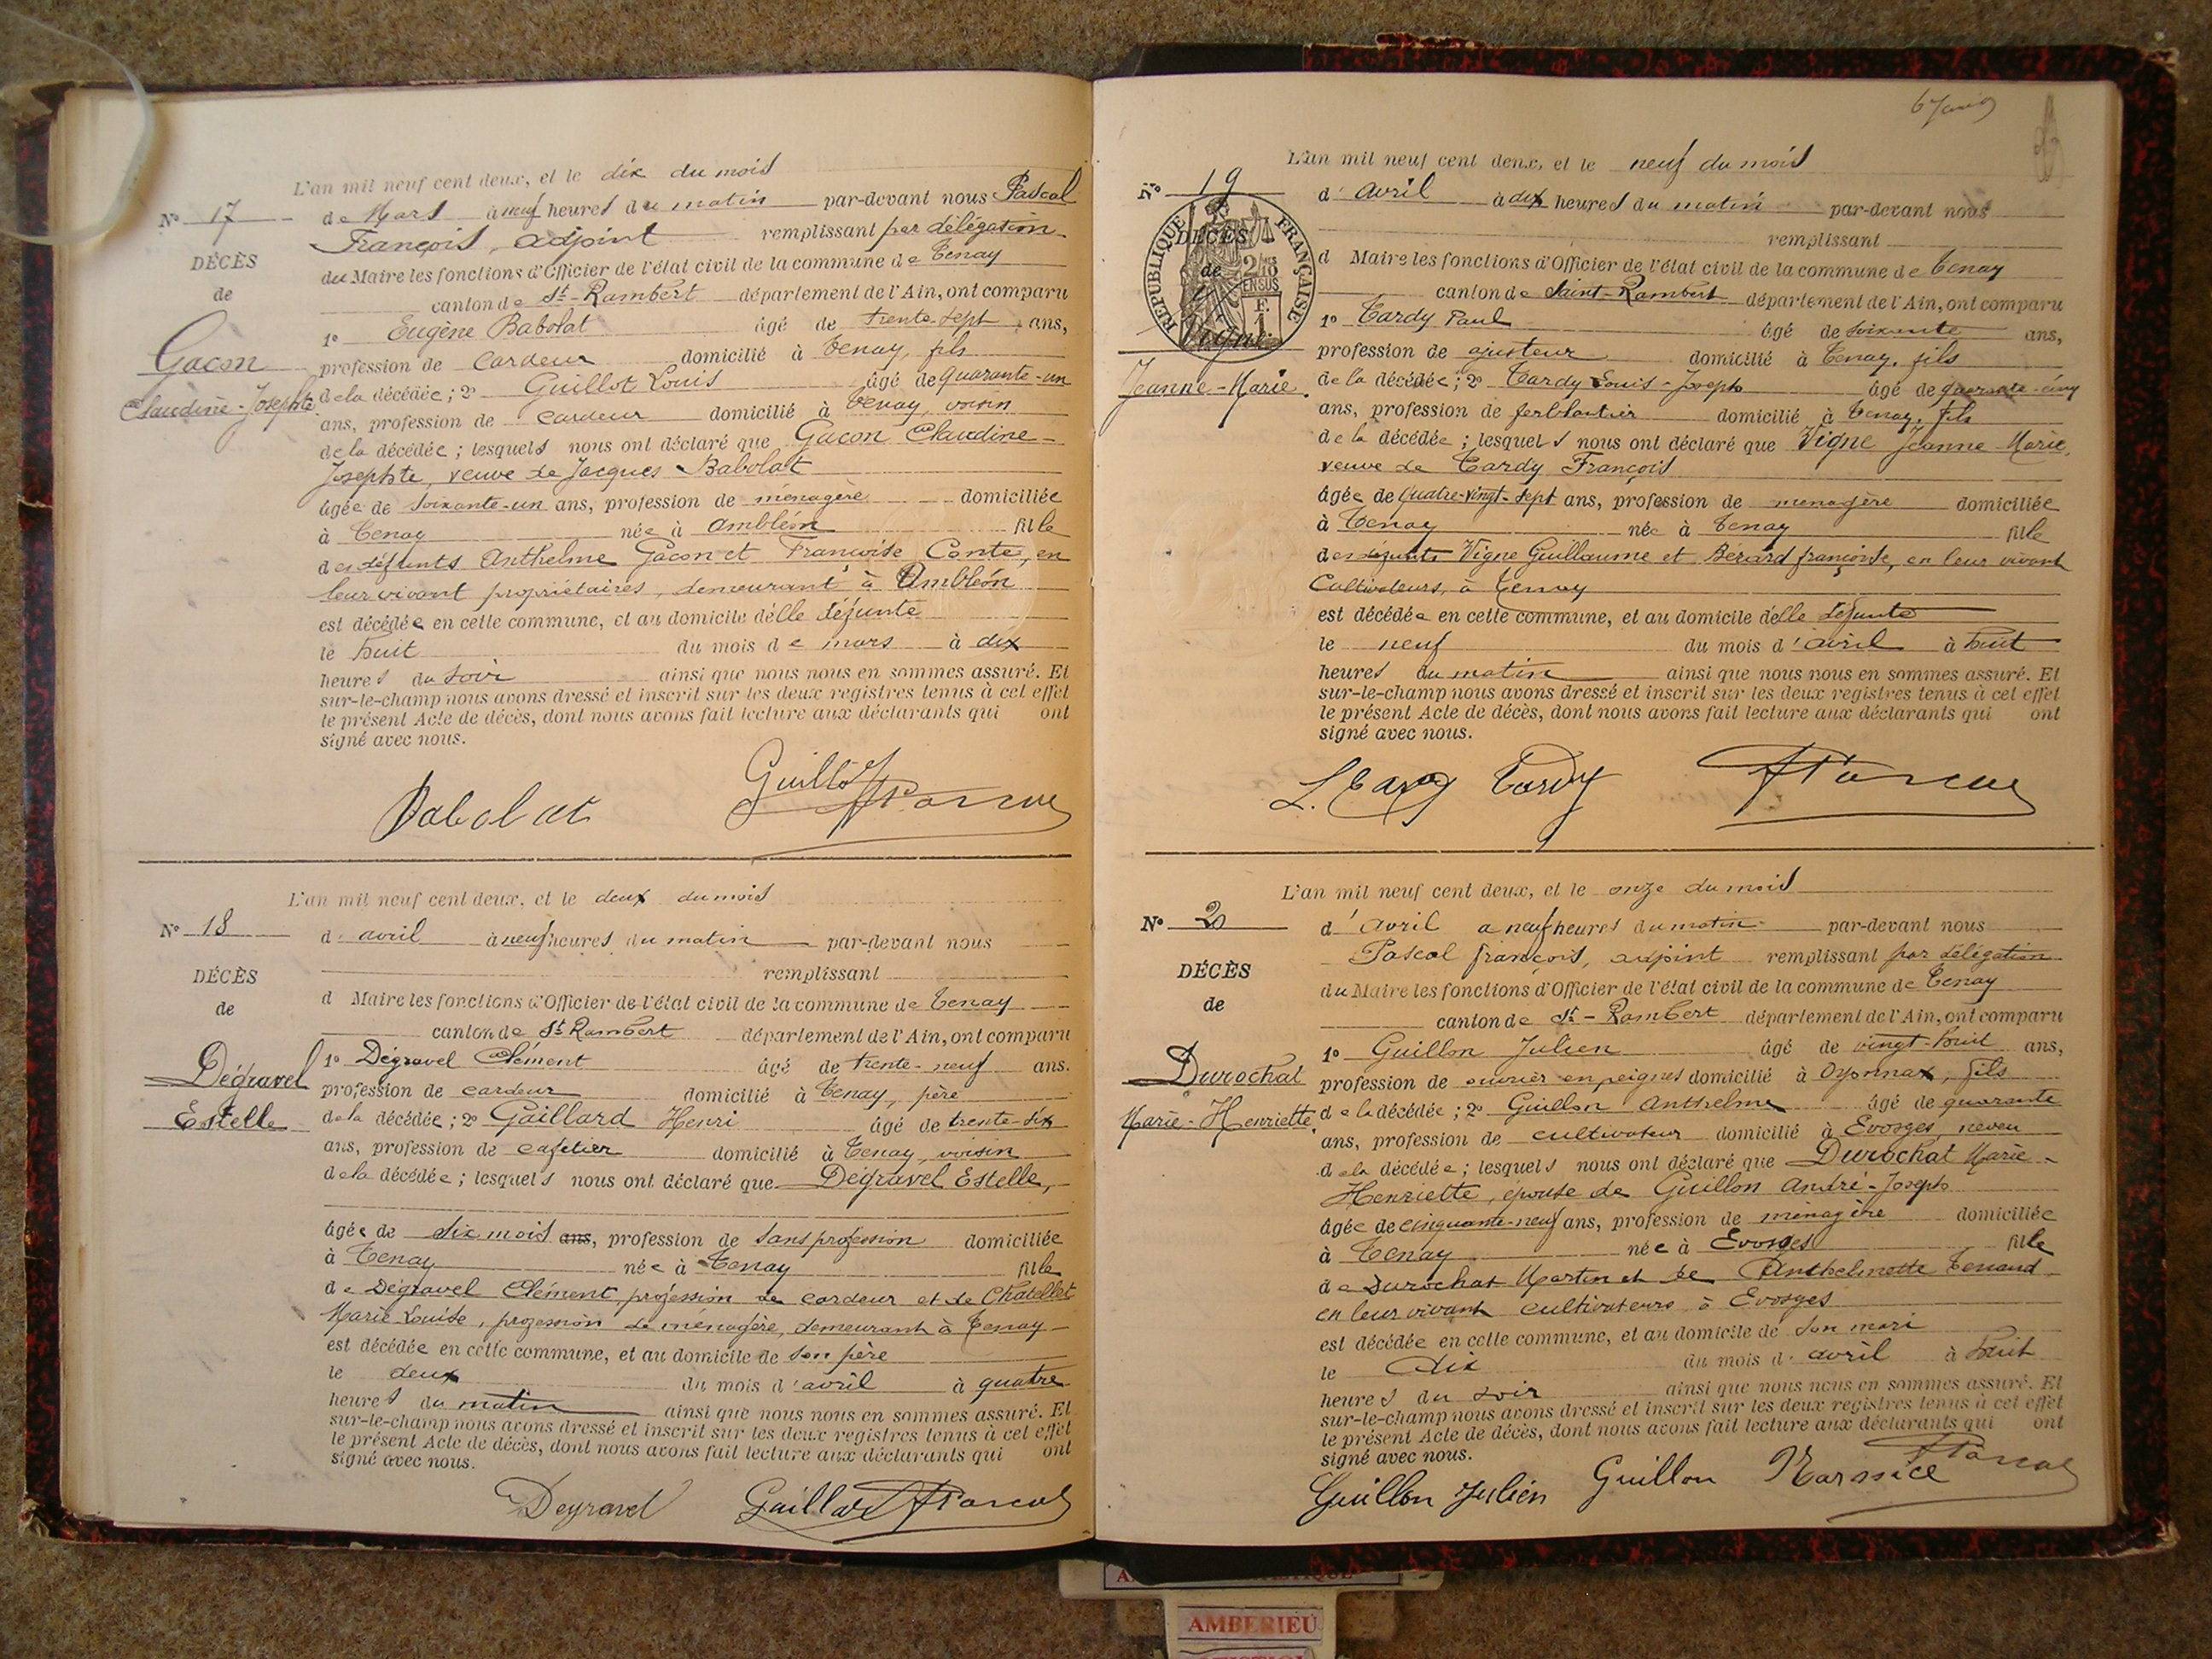 L'an mil neuf cent deux, et le dix du mois
N° 17
de Mars à neuf heures du matin par-devant nous Pascal
François, adjoint remplissant par délégation
DÉCÈS
du Maire les fonctions d'Officier de l'état civil de la commune de Tenay
de
canton de St-Rambert département de l'Ain, ont comparu
1° Eugène Babolat âgé de trente-sept ans,
Gacon
profession de cardeur domicilié à Tenay, fils
Claudine-Josephte
de la décédée; 2° Guillot Louis âgé de quarante-un
ans, profession de cardeur domicilié à Tenay, voisin
de la décédée; lesquels nous ont déclaré que Gacon Claudine-
Josephte, veuve de Jacques Babolat
âgée de soixante-un ans, profession de ménagère domiciliée
à Tenay née à Ambléon fille
des défunts Anthelme Gacon et Françoise Conte, en
leur vivant propriétaires, demeurant à Ambléon
est décédée en cette commune, et au domicile d'elle défunte
le huit du mois de mars à dix
heures du soir ainsi que nous nous en sommes assuré. Et
sur-le-champ nous avons dressé et inscrit sur les deux registres tenus à cet effet
le présent Acte de décès, dont nous avons fait lecture aux déclarants qui ont
signé avec nous.
Babolat Guillot Pascal
L'an mil neuf cent deux, et le deux du mois
N° 18
d'avril à neuf heures du matin par-devant nous
DÉCÈS
remplissant
de
d Maire les fonctions d'Officier de l'état civil de la commune de Tenay
canton de St Rambert département de l'Ain, ont comparu
Dégravel
1° Dégravel Clément âgé de trente-neuf ans.
profession de cardeur domicilié à Tenay, père
Estelle
de la décédée; 2° Gaillard Henri âgé de trente-six
ans, profession de cafetier domicilié à Tenay, voisin
de la décédée; lesquels nous ont déclaré que Dégravel Estelle,
âgée de six mois ans, profession de sans profession domiciliée
à Tenay née à Tenay fille
de Dégravel Clément, profession de cardeur et de Châtellet
Marie Louise, profession de ménagère, demeurant à Tenay
est décédée en cette commune, et au domicile de son père
le deux du mois d'avril à quatre
heures du matin ainsi que nous nous en sommes assuré. Et
sur-le-champ nous avons dressé et inscrit sur les deux registres tenus à cet effet
le présent Acte de décès, dont nous avons fait lecture aux déclarants qui ont
signé avec nous.
Degravel Gaillard Pascal
L'an mil neuf cent deux, et le neuf du mois
N° 19
d'avril à dix heures du matin par-devant nous
remplissant
RÉPUBLIQUE FRANÇAISE
DÉCÈS
de
d Maire les fonctions d'Officier de l'état civil de la commune de Tenay
canton de Saint-Rambert département de l'Ain, ont comparu
Vigne
1° Tardy Paul âgé de soixante ans,
profession de ajusteur domicilié à Tenay, fils
Jeanne-Marie.
de la décédée; 2° Tardy Louis-Joseph âgé de quarante-cinq
ans, profession de ferblantier domicilié à Tenay, fils
de la décédée; lesquels nous ont déclaré que Vigne Jeanne Marie,
veuve de Tardy François
âgée de quatre-vingt-sept ans, profession de ménagère domiciliée
à Tenay née à Tenay fille
des défunts Vigne Guillaume et Bérard françoise, en leur vivant
Cultivateurs, à Tenay
est décédée en cette commune, et au domicile d'elle défunte
le neuf du mois d'avril à huit
heures du matin ainsi que nous nous en sommes assuré. Et
sur-le-champ nous avons dressé et inscrit sur les deux registres tenus à cet effet
le présent Acte de décès, dont nous avons fait lecture aux déclarants qui ont
signé avec nous.
L. Tardy Tardy Pascal
L'an mil neuf cent deux, et le onze du mois
N° 20
d'avril à neuf heures du matin par-devant nous
Pascal françois, adjoint remplissant par délégation
DÉCÈS
du Maire les fonctions d'Officier de l'état civil de la commune de Tenay
de
canton de St-Rambert département de l'Ain, ont comparu
1° Guillon Julien âgé de vingt-huit ans,
Durochat
profession de ouvrier en peignes domicilié à Oyonnax, fils
Marie-Henriette.
de la décédée; 2° Guillon Anthelme âgé de quarante
ans, profession de cultivateur domicilié à Evosges, neveu
de la décédée; lesquels nous ont déclaré que Durochat Marie-
Henriette, épouse de Guillon André-Joseph
âgée de cinquante-neuf ans, profession de ménagère domiciliée
à Tenay née à Evosges fille
de Durochat Martin et de Anthelmette Tenand
en leur vivant cultivateurs à Evosges
est décédée en cette commune, et au domicile de son mari
le dix du mois d'avril à huit
heures du soir ainsi que nous nous en sommes assuré. Et
sur-le-champ nous avons dressé et inscrit sur les deux registres tenus à cet effet
le présent Acte de décès, dont nous avons fait lecture aux déclarants qui ont
signé avec nous.
Guillon Julien Guillon Pascal
AMBERIEU